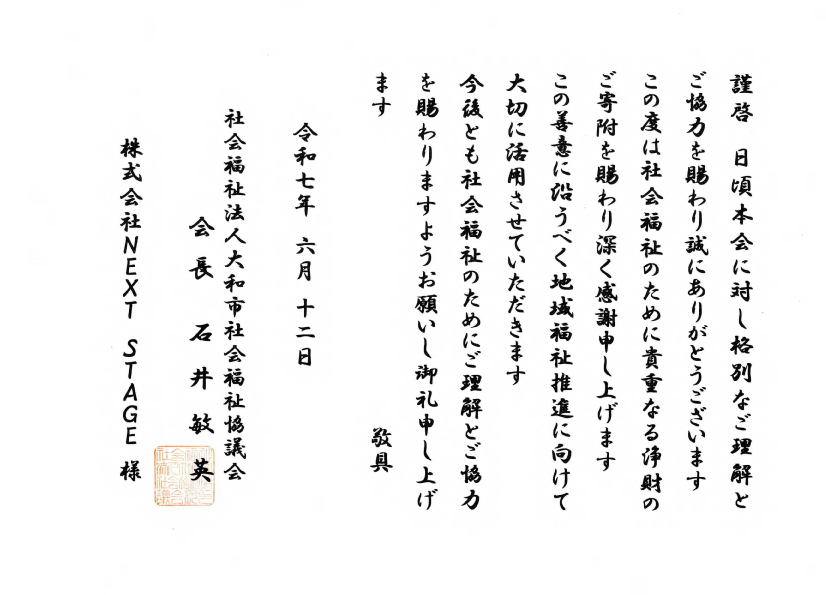 謹啓　日頃本会に対し格別なご理解と
ご協力を賜わり誠にありがとうございます
この度は社会福祉のために貴重なる浄財の
ご寄附を賜わり深く感謝申し上げます
この善意に沿うべく地域福祉推進に向けて
大切に活用させていただきます
今後とも社会福祉のためにご理解とご協力
を賜わりますようお願いし御礼申し上げ
ます　敬具
令和七年　六月　十二日
社会福祉法人大和市社会福祉協議会
会長　石井敏英
株式会社NEXT STAGE　様